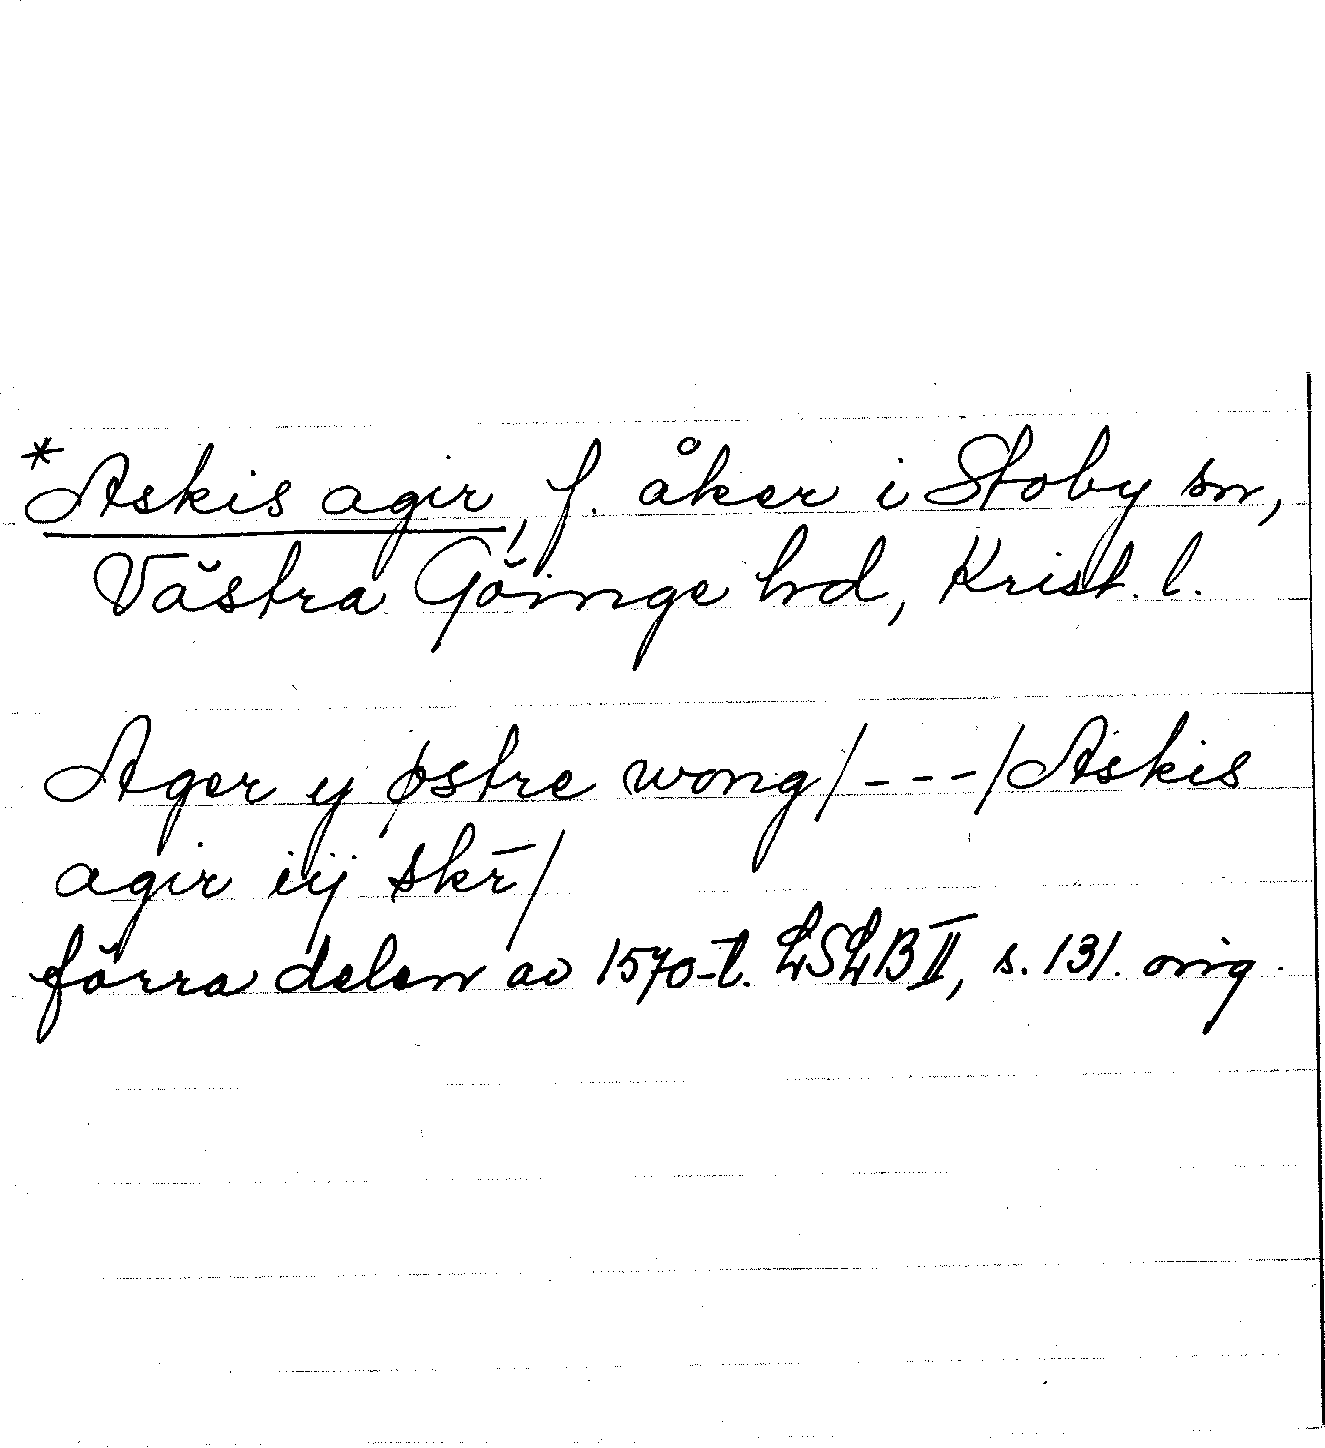 *Askis agir, f. åker i Stoby sn,
Västra Göinge hd, Krist. l.
Ager y østre wong/---/Askis
agir iij skr̄/
förra delen av 1570-t. LSLB II, s. 131. orig.